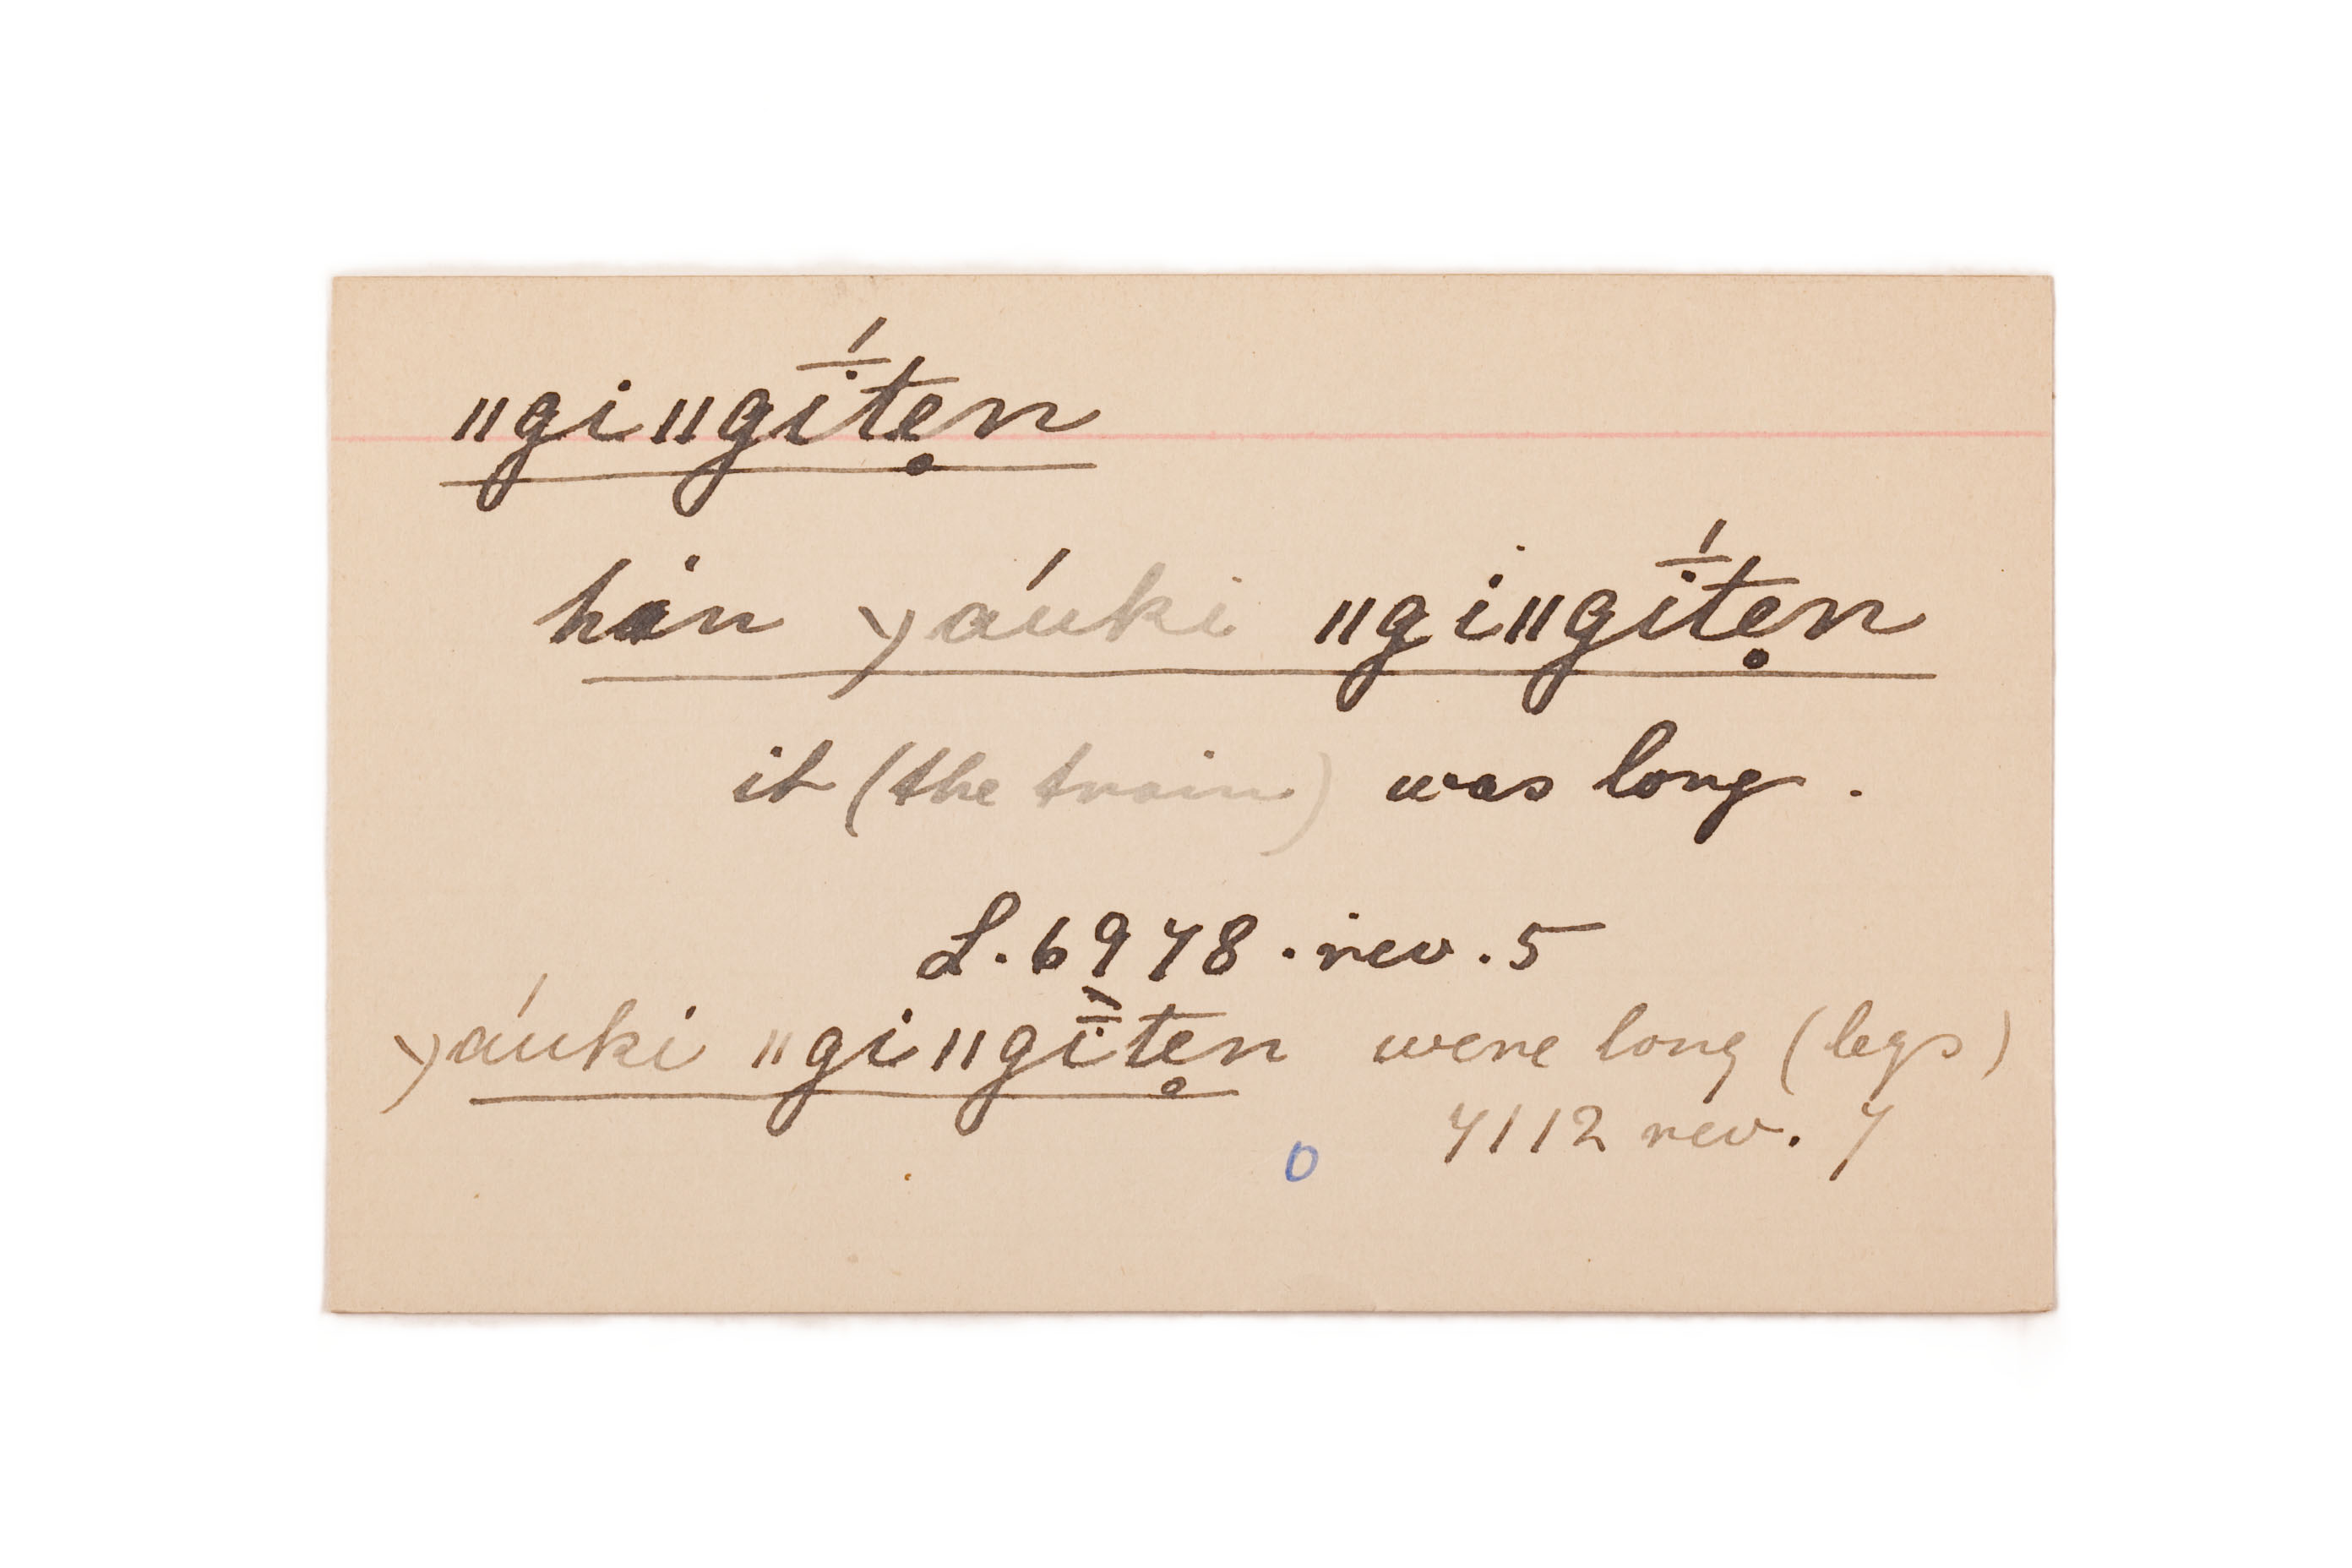 ǁgiǁgī́tẹn
hȧn yáuki ǁgiǁgī́tẹn
it (the train) was long .
L. 6978 . rev . 5
yáuki ǁgiǁgī́tẹn were long (legs)
0 7112 rev. 7